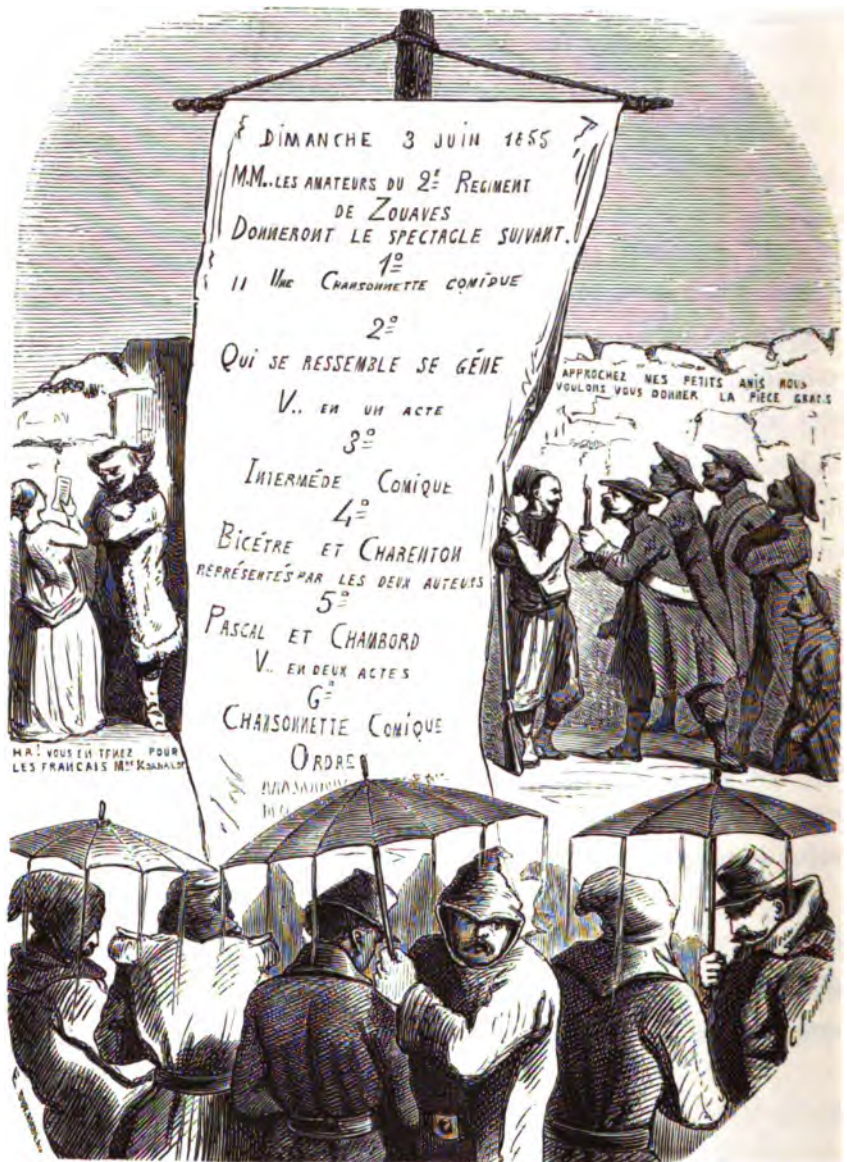 DIMANCHE 3 JUIN 1855
M.M.. LES AMATEURS DU 2E REGIMENT
DE ZOUAVES
DONNERONT LE SPECTACLE SUIVANT.
1o
UNE CHANSONNETTE COMIQUE
2o
QUI SE RESSEMBLE SE GÊNE
V.. EN UN ACTE
3o
INTERMÉDE COMIQUE
4o
BICÉTRE ET CHARENTON
REPRÉSENTÉS PAR LES DEUX AUTEURS
5o
PASCAL ET CHAMBORD
V.. EN DEUX ACTES
6o
CHANSONNETTE COMIQUE
ORDRE
APPROCHEZ MES PETITS AMIS NOUS
VOULONS VOUS DONNER LA PIÈCE GRATIS
HA! VOUS EN TENEZ POUR
LES FRANCAIS MME